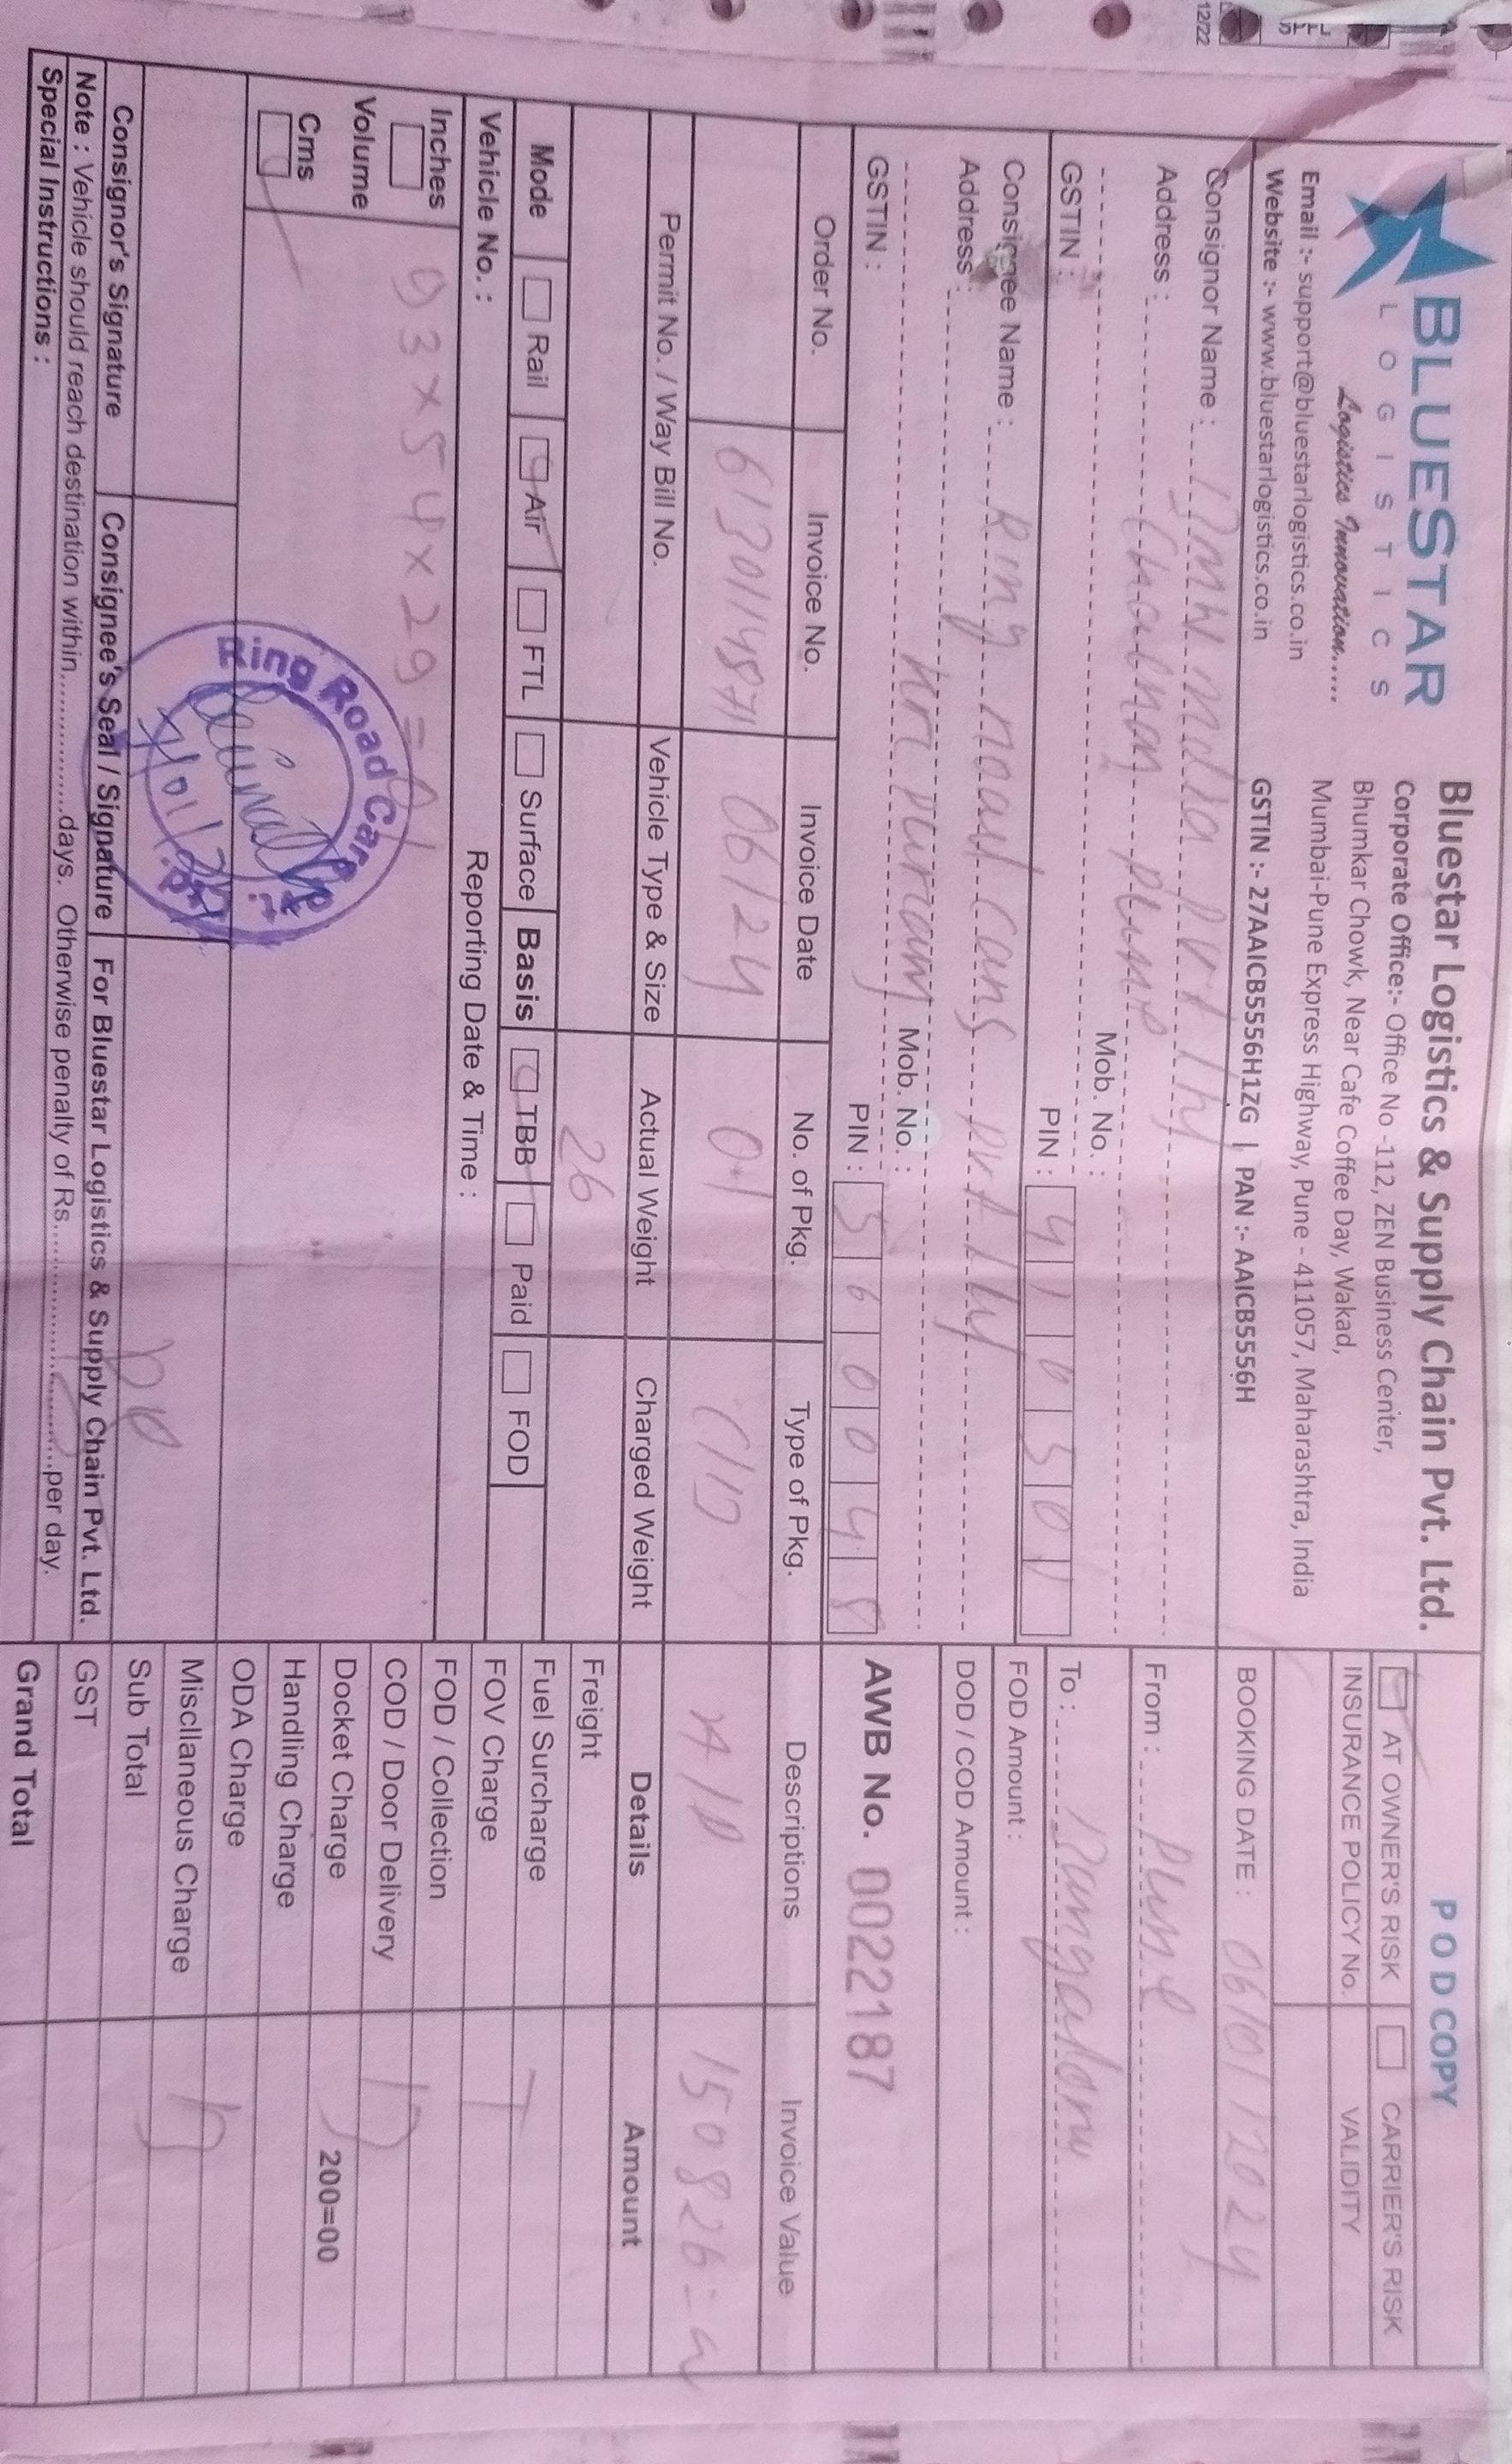 BLUESTAR
LOGISTICS
Logistics Innovation.....
Email :- support@bluestarlogistics.co.in
Website :- www.bluestarlogistics.co.in
Bluestar Logistics & Supply Chain Pvt. Ltd.
Corporate Office:- Office No -112, ZEN Business Center,
Bhumkar Chowk, Near Cafe Coffee Day, Wakad,
Mumbai-Pune Express Highway, Pune - 411057, Maharashtra, India
GSTIN :- 27AAICB5556H1ZG | PAN :- AAICB5556H
POD COPY
AT OWNER'S RISK CARRIER'S RISK
INSURANCE POLICY No. VALIDITY
BOOKING DATE : 06/01/2024
From : Pune
To : Bangalore
FOD Amount :
DOD / COD Amount :
AWB No. 0022187
12/22
Consignor Name : BMW India pvt
Address : Pune
Mob. No. :
GSTIN : PIN : 410501
Consignee Name : Ring road cars pvt
Address :
Mob. No. :
GSTIN : PIN : 560048
Order No. Invoice No. Invoice Date No. of Pkg. Type of Pkg. Descriptions Invoice Value
6130114871 06/24 01 C/B A/P 150826=
Permit No. / Way Bill No. Vehicle Type & Size Actual Weight Charged Weight
26
Mode Rail Air FTL Surface Basis TBB Paid FOD
Vehicle No. : Reporting Date & Time :
Inches
Volume
Cms
93×54×29=01
Ring Road Cars Pvt. Ltd.
7/01/24
Consignor's Signature Consignee's Seal / Signature For Bluestar Logistics & Supply Chain Pvt. Ltd.
Note : Vehicle should reach destination within.................days. Otherwise penalty of Rs..............................per day.
Special Instructions :
Details Amount
Freight
Fuel Surcharge
FOV Charge
FOD / Collection
COD / Door Delivery
Docket Charge 200=00
Handling Charge
ODA Charge
Miscllaneous Charge
Sub Total
GST
Grand Total
T
B
B